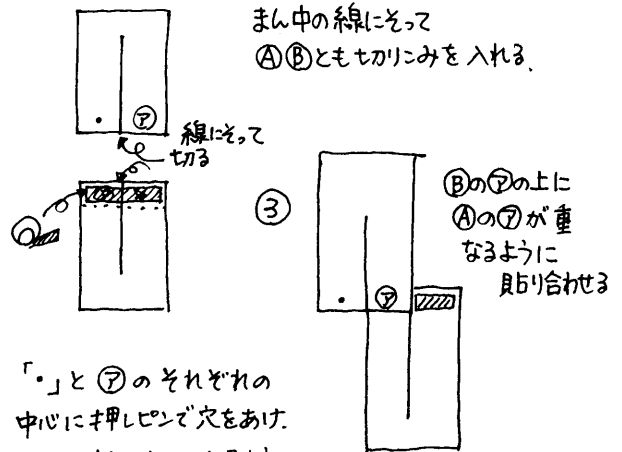 まん中の線にそって
ⒶⒷとも切りこみを入れる.
㋐
線にそって
切る
③
Ⓑの㋐の上に
Ⓐの㋐が重
なるように
貼り合わせる
㋐
「・」と㋐のそれぞれの
中心に押しピンで穴をあけ.